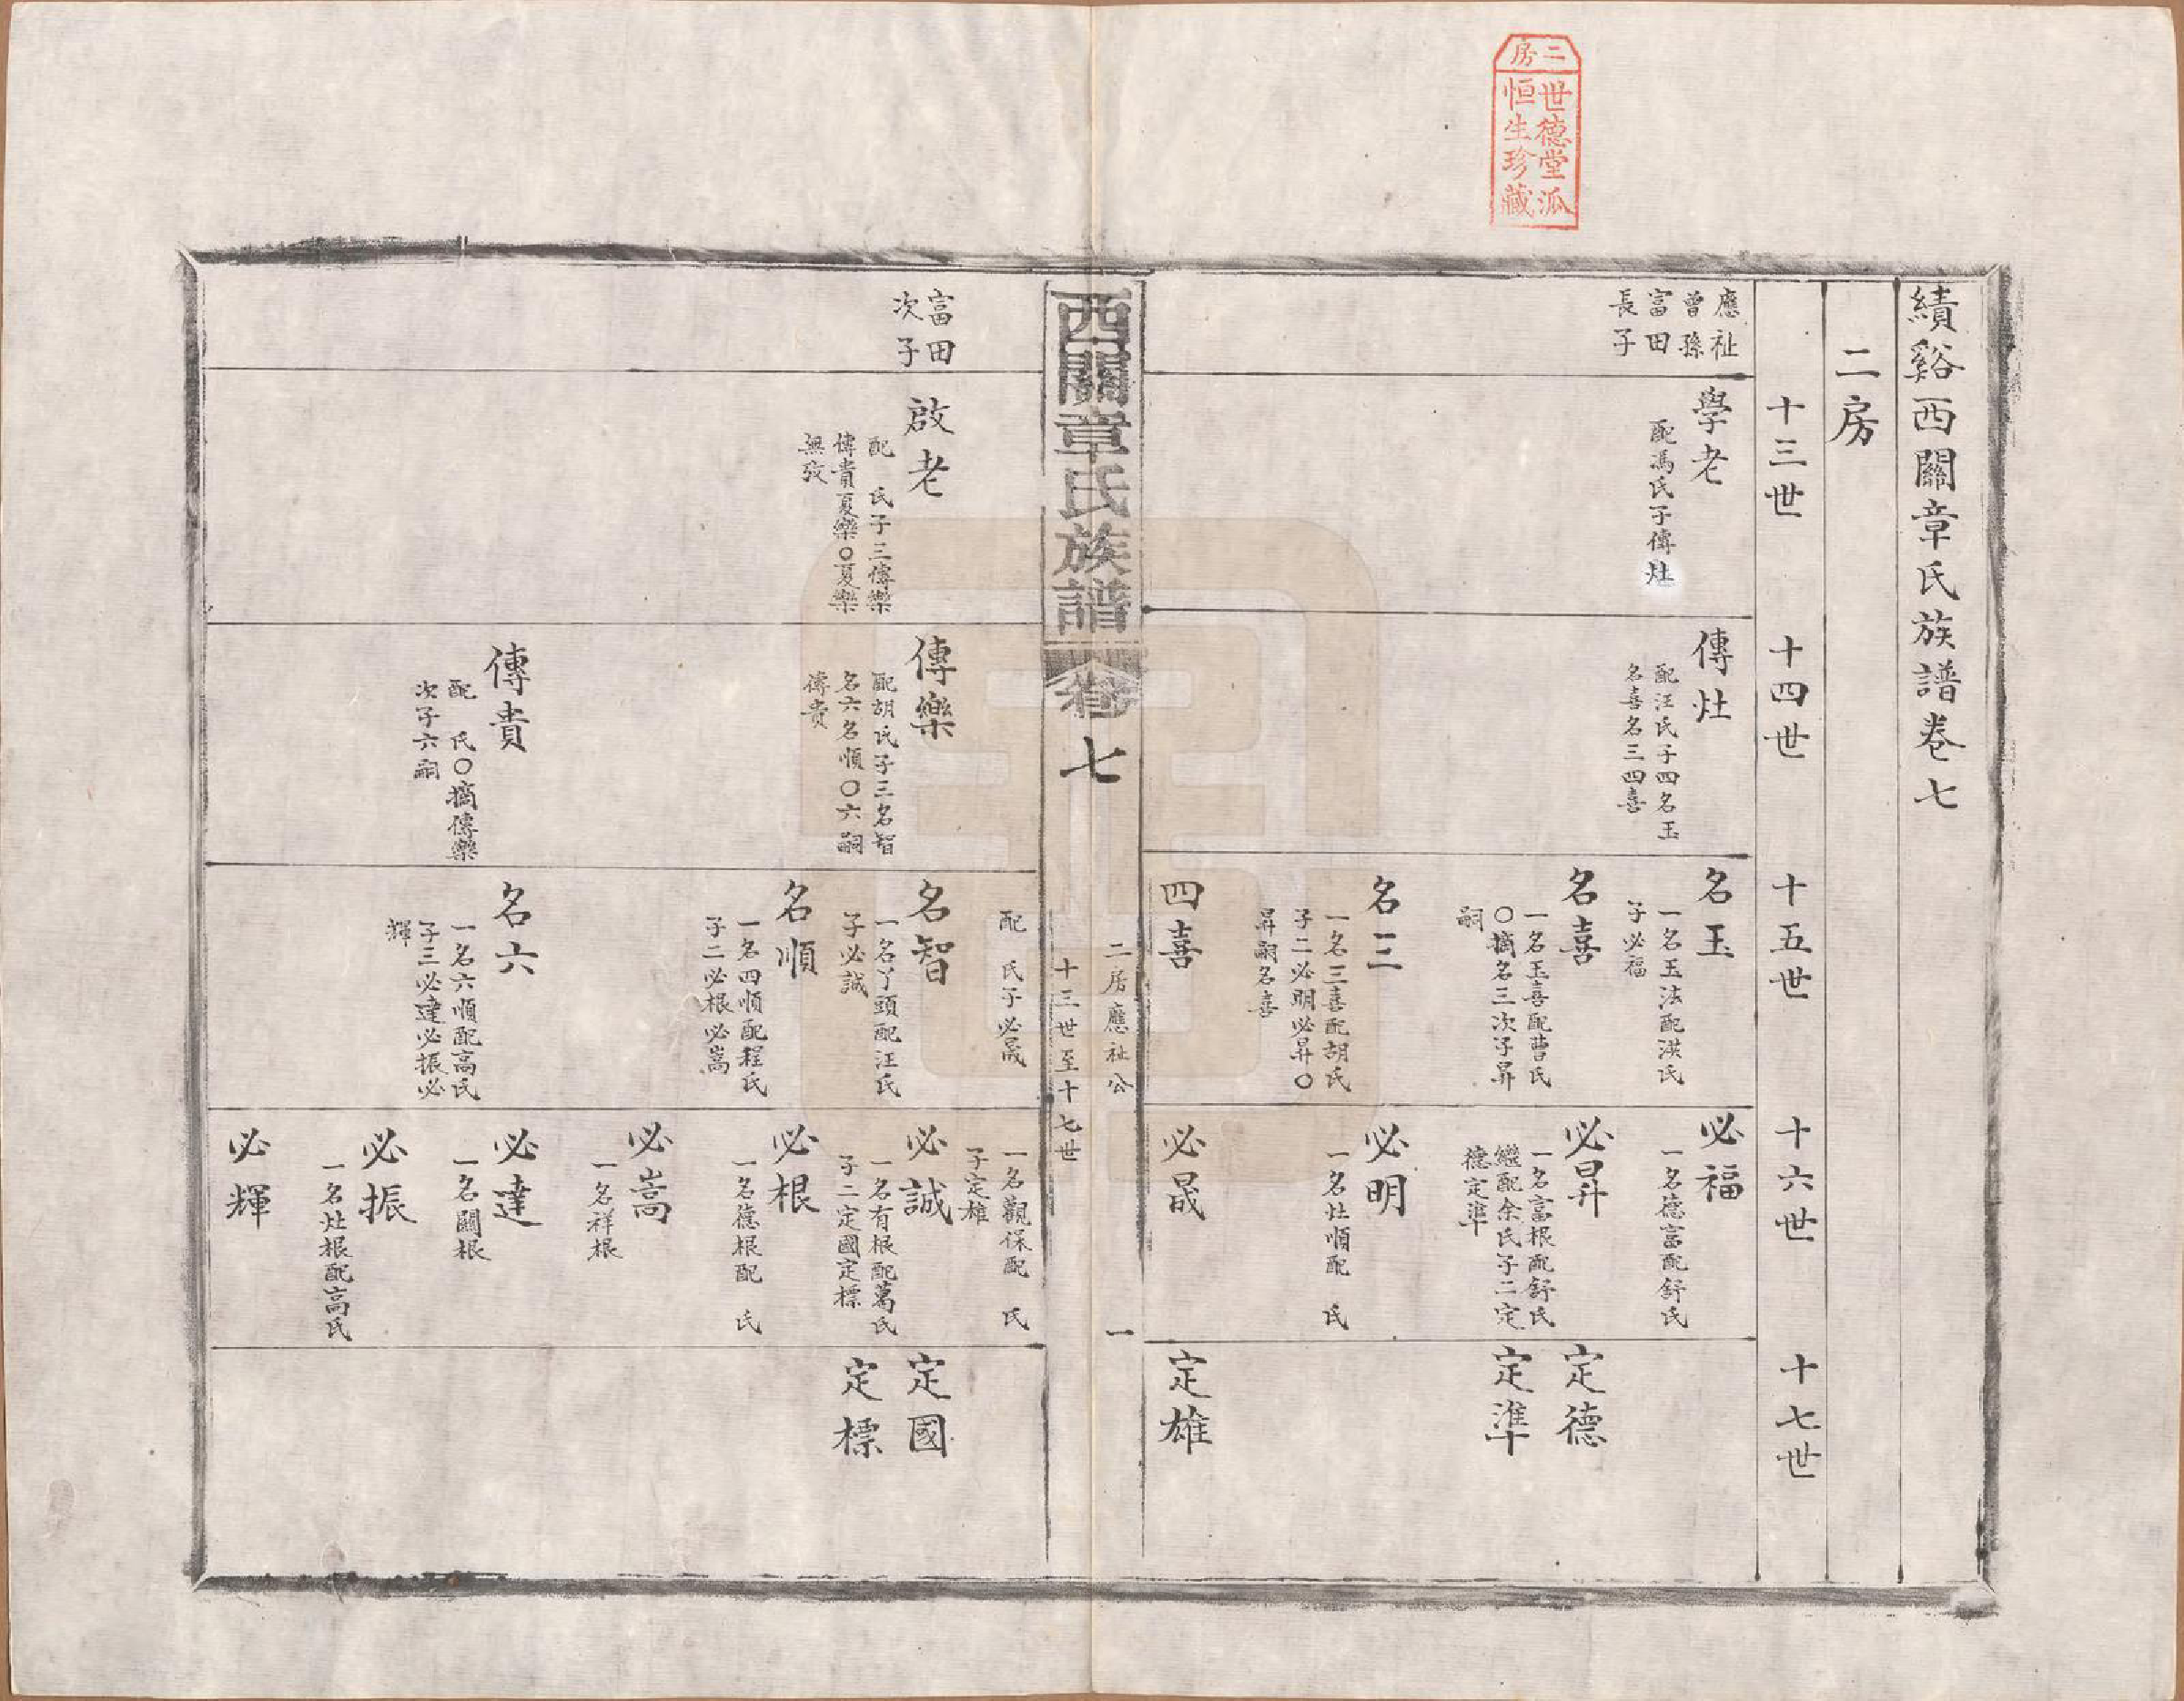 二房
世德堂派
恒生珍藏
績谿西關章氏族譜卷七
二房
十三世
十四世
十五世
十六世
十七世
應祉
曾孫
富田
長子
學老
配馮氏子傳灶
傳灶
配汪氏子四名玉
名喜名三四喜
名玉
一名玉法配洪氏
子必福
名喜
一名玉喜配曹氏
○摘名三次子昇
嗣
名三
一名三喜配胡氏
子二必明必昇○
昇嗣名喜
四喜
必福
一名德富配舒氏
必昇
一名富根配舒氏
繼配余氏子二定
德定準
必明
一名灶順配　氏
必晟
定德
定準
定雄
西關章氏族譜
卷七
二房應祉公
十三世至十七世
一
富田
次子
啟老
配　氏子三傳樂
傳貴夏樂○夏樂
無攷
傳樂
配胡氏子三名智
名六名順○六嗣
傳貴
傳貴
配　氏○摘傳樂
次子六嗣
配　氏子必晟
名智
一名丫頭配汪氏
子必誠
名順
一名四順配程氏
子二必根必嵩
名六
一名六順配高氏
子三必達必振必
輝
一名觀保配　氏
子定雄
必誠
一名有根配葛氏
子二定國定標
必根
一名德根配　氏
必嵩
一名祥根
必達
一名關根
必振
一名灶根配高氏
必輝
定國
定標